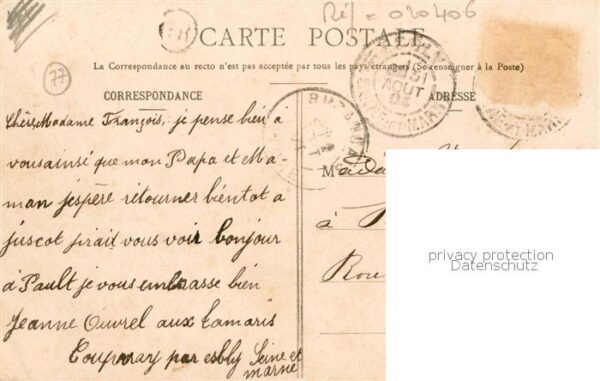 Réf = 020406
77
CARTE POSTALE
La Correspondance au recto n'est pas acceptée par tous les pays étrangers (Se renseigner à la Poste)
CORRESPONDANCE
ADRESSE
31
AOUT
04
Chère Madame François, je pense bien à
vousainsé que mon Papa et Ma-
man jespère retourner bientot a
juscot jirait vous voir bonjour
à Pault je vous embrasse bien
Jeanne Ouvrel aux tamaris
Coupvray par esbly Seine et
marne
M
à
Rou
privacy protection
Datenschutz